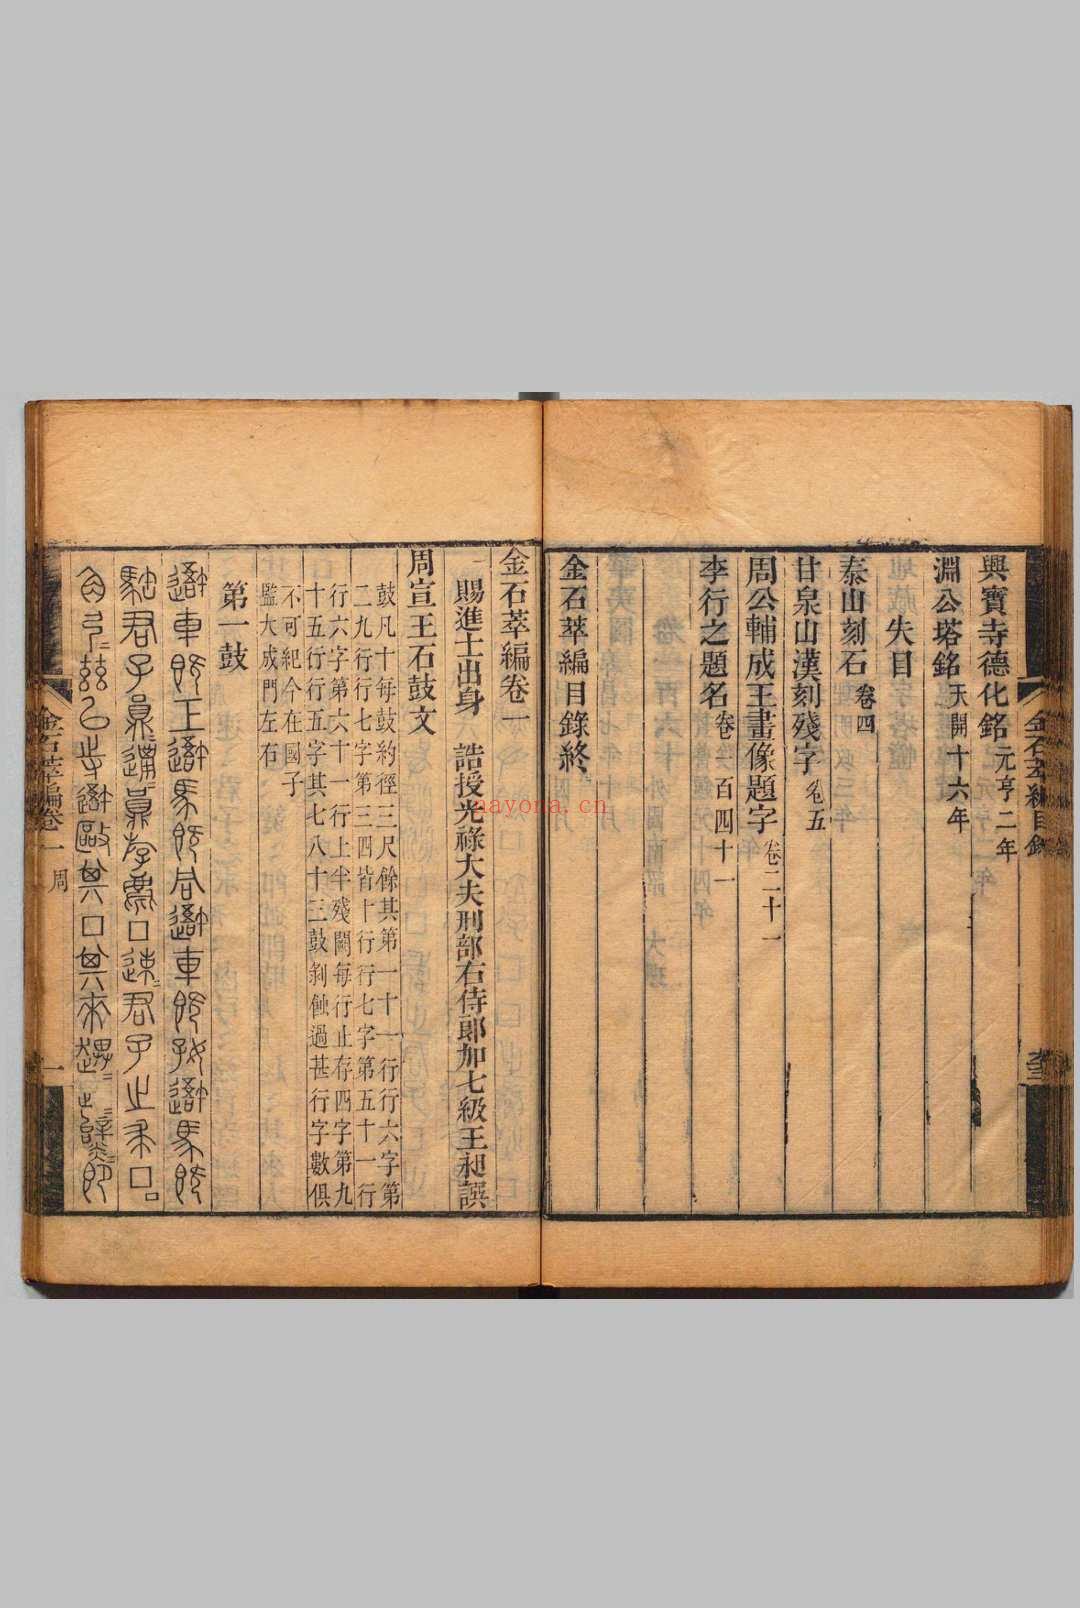 興寶寺德化銘元亨二年
淵公塔銘天開十六年
失目
泰山刻石卷四
甘泉山漢刻殘字卷五
周公輔成王畫像題字卷二十一
李行之題名卷一百四十一
金石萃編目錄終
金石萃編卷一
賜進士出身 誥授光祿大夫刑部右侍郎加七級王昶譔
周宣王石鼓文
鼓凡十每鼓約徑三尺餘其第一十一行行六字第
二九行行七字第三四皆十行行七字第五十一行
行六字第六十一行上半殘闕每行止存四字第九
十五行行五字其七八十三鼓剝蝕過甚行字數俱
不可紀今在國子
監大成門左右
第一鼓
避車既工避馬既同避車既好避馬既
駐君子員邋員斿麀□速君子之求□
金石萃編卷一 周 一
nayona.cn